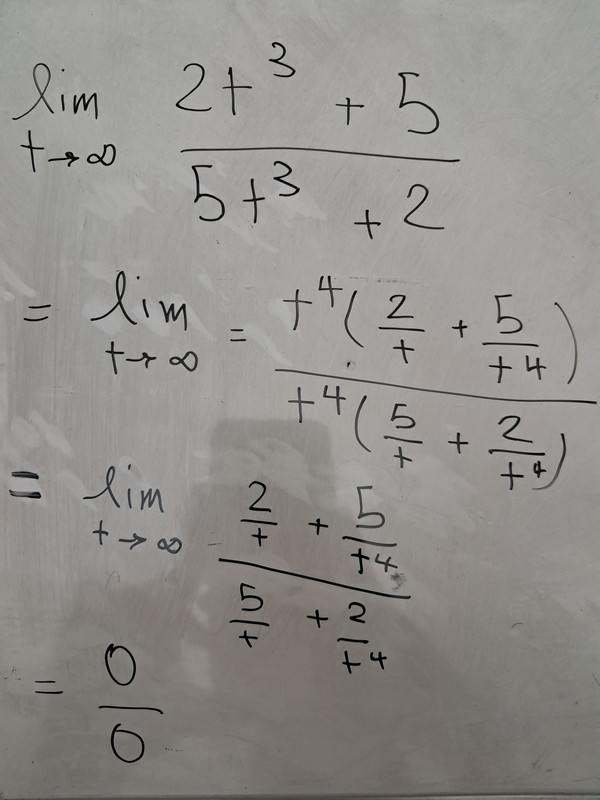 lim t→∞ (2t^3 + 5)/(5t^3 + 2)
= lim t→∞ = (t^4(2/t + 5/t^4))/(t^4(5/t + 2/t^4))
= lim t→∞ (2/t + 5/t^4)/(5/t + 2/t^4)
= 0/0